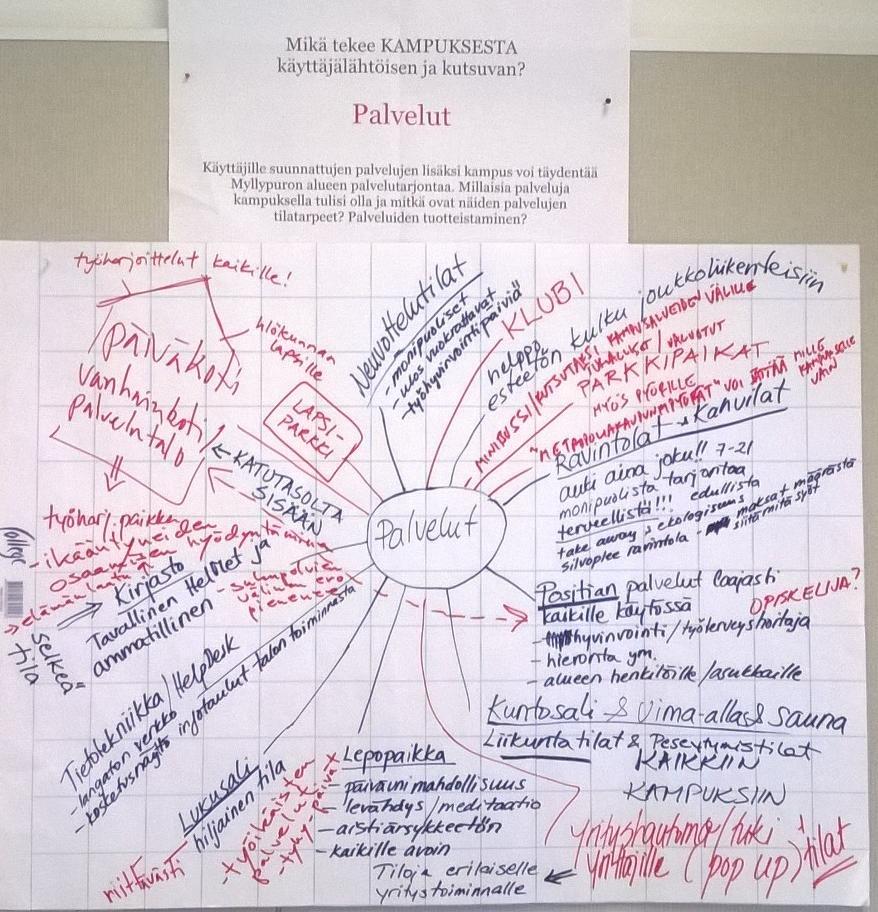 Mikä tekee KAMPUKSESTA
käyttäjälähtöisen ja kutsuvan?
Palvelut
Käyttäjille suunnattujen palvelujen lisäksi kampus voi täydentää
Myllypuron alueen palvelutarjontaa. Millaisia palveluja
kampuksella tulisi olla ja mitkä ovat näiden palvelujen
tilatarpeet? Palveluiden tuotteistaminen?
työharjoittelut kaikille!
PÄIVÄKOTI
vanhainkoti
palvelutalo
hlökunnan
lapsille
LAPSI-
PARKKI
← KATUTASOLTA
SISÄÄN
Neuvottelutilat
- monipuoliset
- ulos vuokrattavat
- työhyvinvointipäiviä
KLUBI
helppo
esteetön kulku joukkoliikenteisiin
MINIBUSSI/KUTSUTAKSI KAMPUSALUEIDEN VÄLILLE
PARKKIPAIKAT
MYÖS PYÖRILLE
"METROPOLIAKAUPUNKIPYÖRÄT" VOI JÄTTÄÄ MILLE
KAMPUKSELLE
VAIN
Ravintolat & Kahvilat
auki aina joku!! 7-21
monipuolista tarjontaa
terveellistä!!! edullista
take away & ekologisuus
silvoplee ravintola - maksat määrästä
siitä mitä syöt
Palvelut
työharj.paikka
- ikääntyneiden
osaamisen hyödyntäminen
→ elämänlaatu ↑
- sukupolvien
välinen ero
pienenee
Kirjasto
Tavallinen HelMet ja
ammatillinen
selkeä
tila
College
Positian palvelut laajasti
kaikille käytössä
OPISKELIJA?
- hyvinvointi/työterveyshoitaja
- hieronta ym.
- alueen henkilöille/asukkaille
Tietotekniikka/HelpDesk
- langaton verkko
- kosketusnäyttö infotaulut talon toiminnasta
Kuntosali & Uima-allas & sauna
Liikuntatilat & Peseytymistilat
KAIKKIIN
KAMPUKSIIN
Lukusali
hiljainen tila
riittävästi
- työikäisten
palvelut
- tyky-päivät
Lepopaikka
- päiväuni mahdollisuus
- levähdys/meditaatio
- aistiärsykkeetön
- kaikille avoin
Tiloja erilaiselle
yritystoiminnalle
yrityshautomo/tuki
yrittäjille (pop up) + tilat